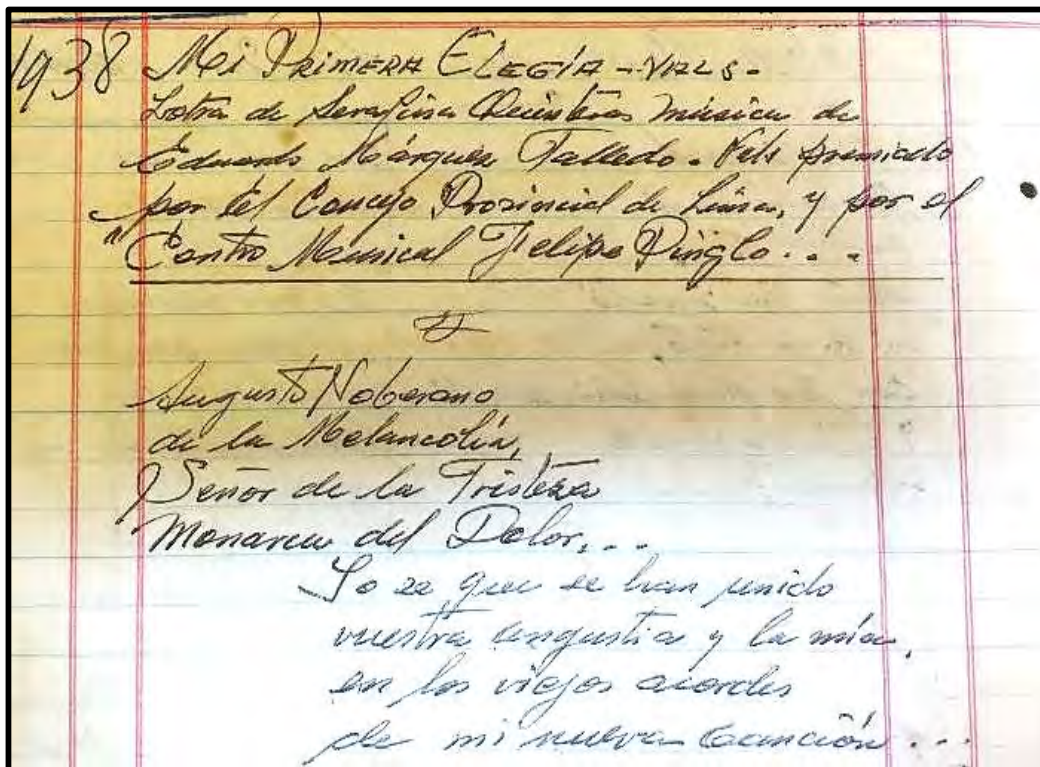 1938 Mi PRIMERA ELEGÍA - VALS -
Letra de Serafina Quinteras música de
Eduardo Márquez Talledo. Vals premiado
por el Concejo Provincial de Lima, y por el
"Centro Musical Felipe Pinglo...
Augusto Soberano
de la Melancolía,
Señor de la Tristeza
Monarca del Dolor,...
Yo se que se han unido
vuestra angustia y la mía,
en los viejos acordes
de mi nueva Canción...